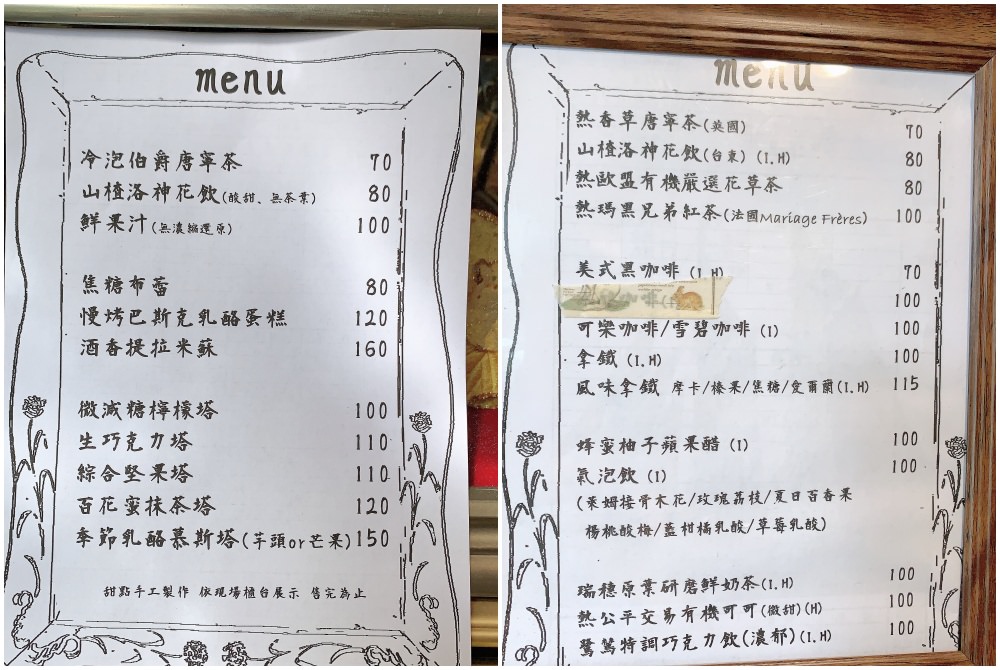 menu
冷泡伯爵唐寧茶 70
山楂洛神花飲(酸甜、無茶葉) 80
鮮果汁(無濃縮還原) 100
焦糖布蕾 80
慢烤巴斯克乳酪蛋糕 120
酒香提拉米蘇 160
微減糖檸檬塔 100
生巧克力塔 110
綜合堅果塔 110
百花蜜抹茶塔 120
季節乳酪慕斯塔(芋頭or芒果) 150
甜點手工製作 依現場櫃台展示 售完為止
menu
熱香草唐寧茶(英國) 70
山楂洛神花飲(台東) (I.H) 80
熱歐盟有機嚴選花草茶 80
熱瑪黑兄弟紅茶(法國Mariage Frères) 100
美式黑咖啡 (I.H) 70
咖啡 100
可樂咖啡/雪碧咖啡 (I) 100
拿鐵 (I.H) 100
風味拿鐵 摩卡/榛果/焦糖/愛爾蘭(I.H) 115
蜂蜜柚子蘋果醋 (I) 100
氣泡飲 (I) 100
(萊姆接骨木花/玫瑰荔枝/夏日百香果
楊桃酸梅/藍柑橘乳酸/草莓乳酸)
瑞穗原葉研磨鮮奶茶(I.H) 100
熱公平交易有機可可(微甜)(H) 100
鷺鷥特調巧克力飲(濃郁)(I.H) 100